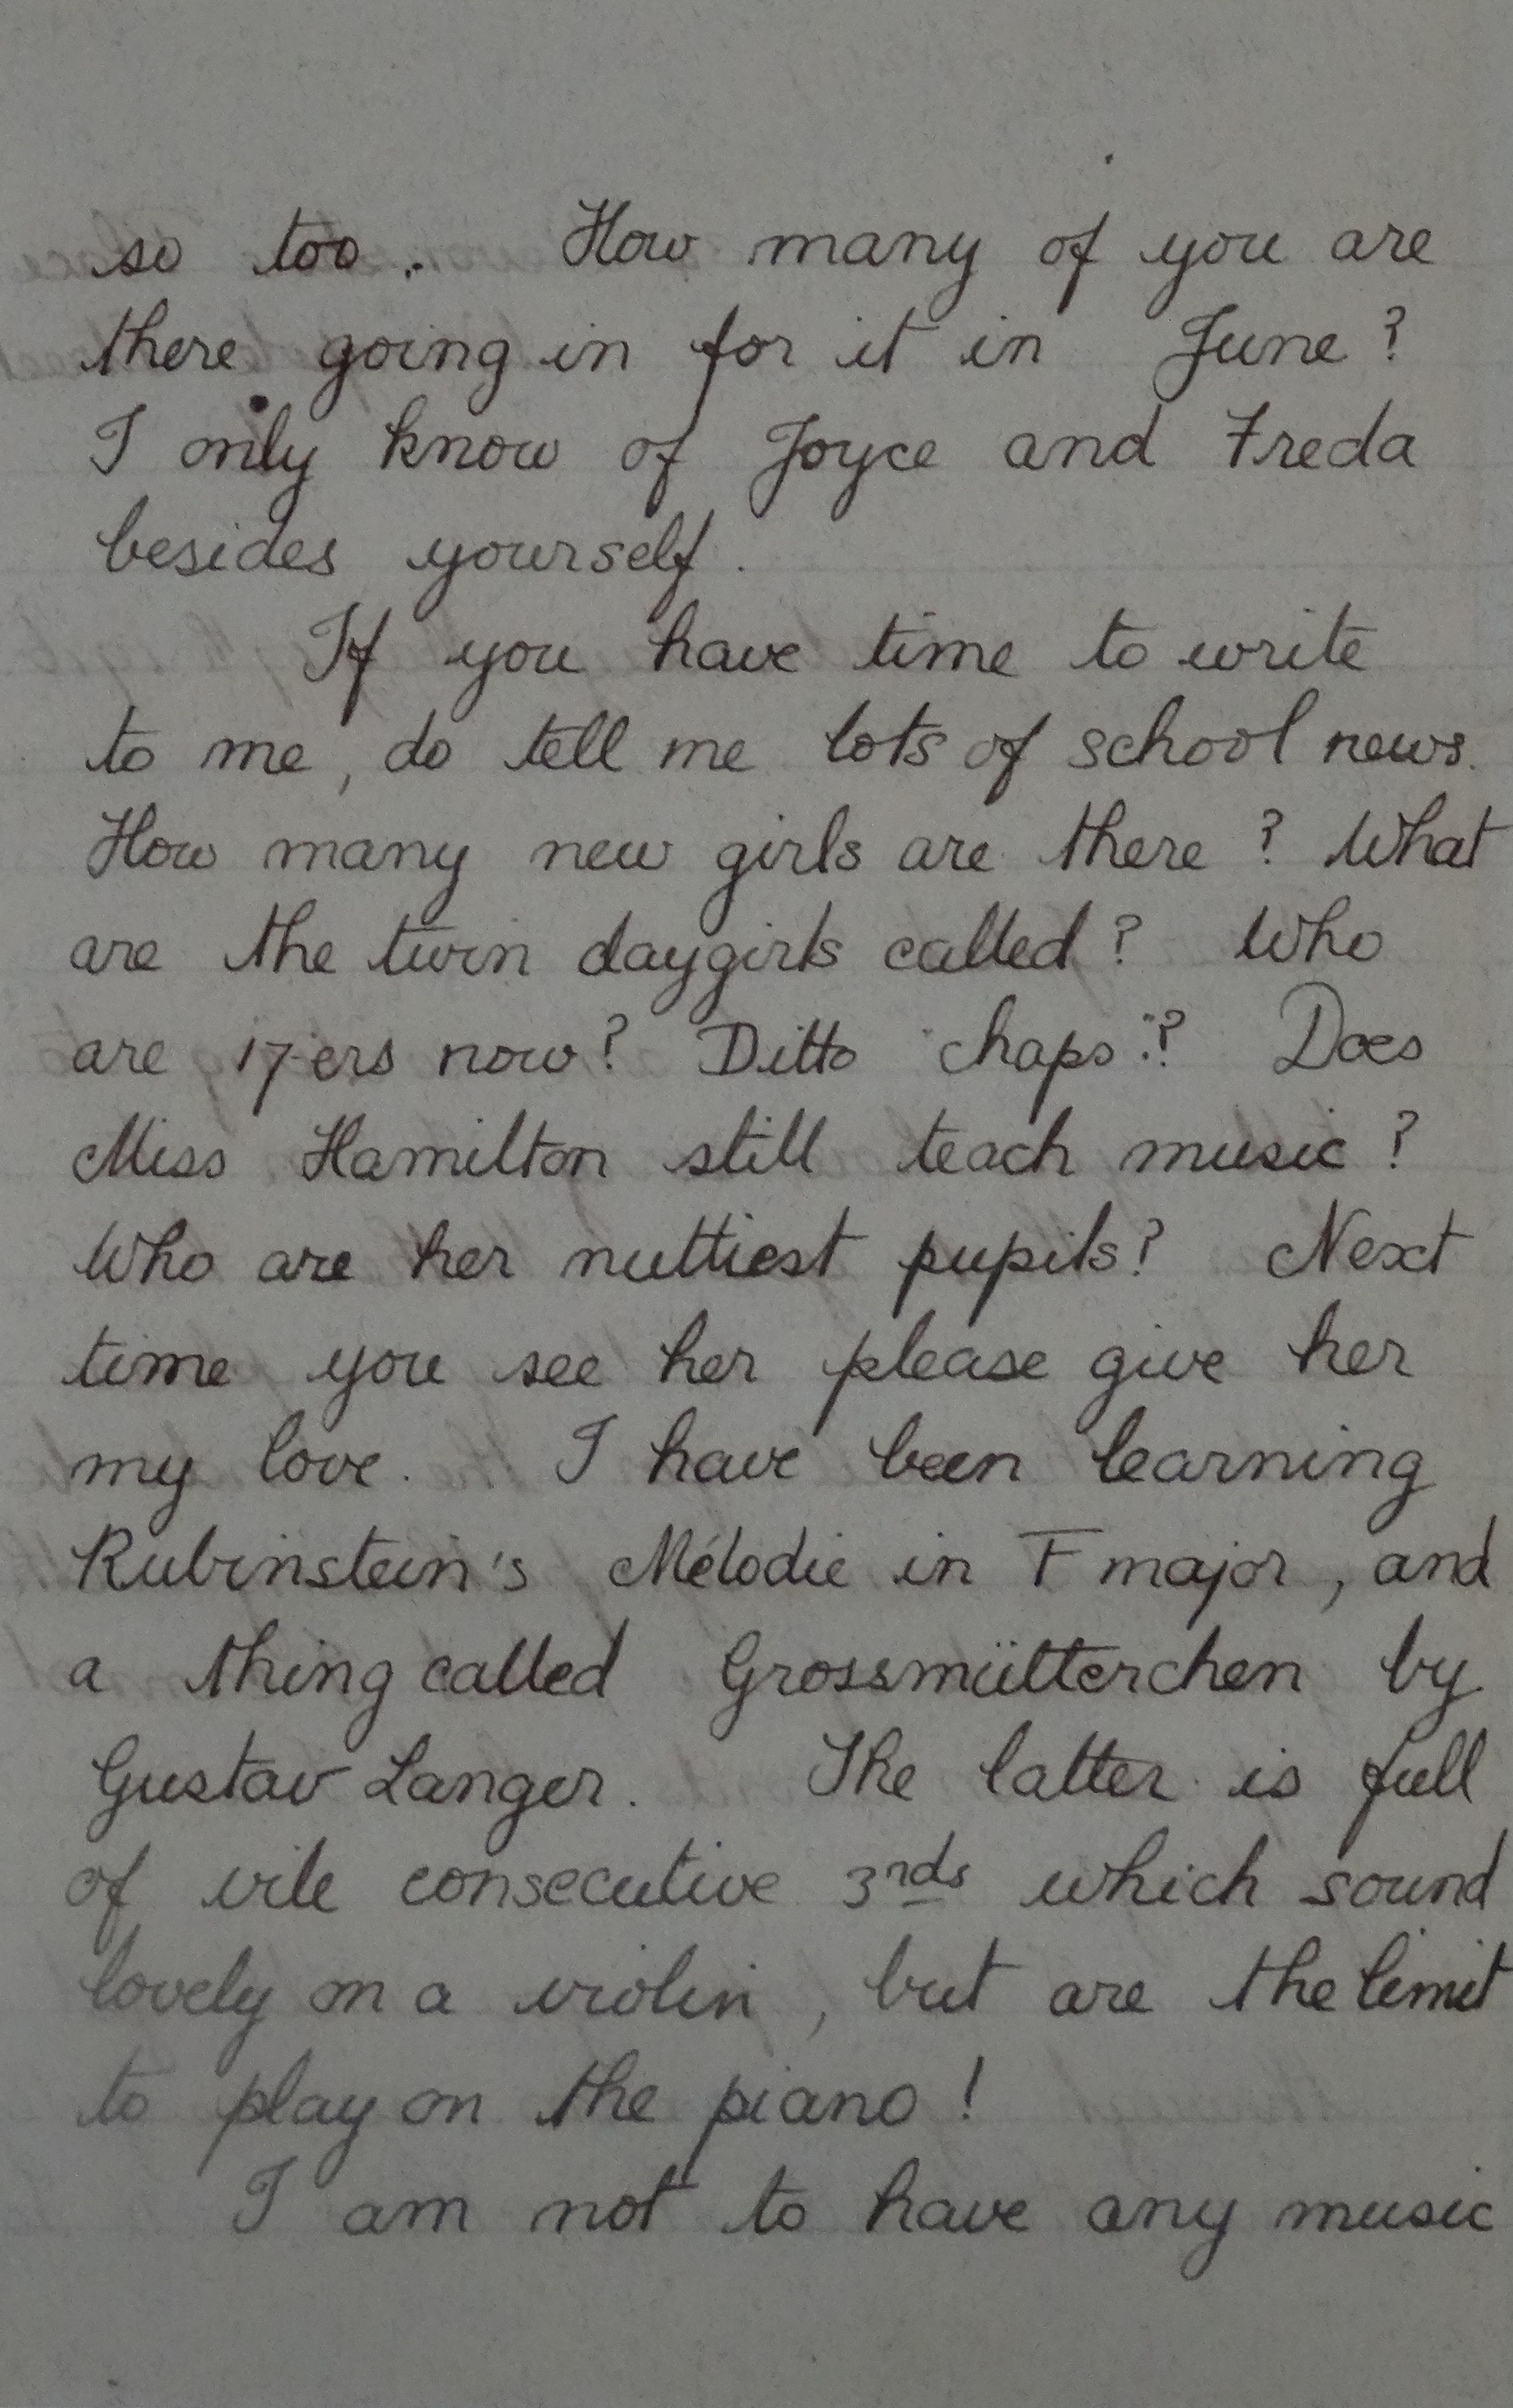 so too. How many of you are
there going in for it in June?
I only know of Joyce and Freda
besides yourself.
If you have time to write
to me, do tell me lots of school news.
How many new girls are there? What
are the twin daygirls called? Who
are 17-ers now? Ditto "chaps"? Does
Miss Hamilton still teach music?
Who are her nuttiest pupils? Next
time you see her please give her
my love. I have been learning
Rubinstein's Mélodie in F major, and
a thing called Grossmütterchen by
Gustav Langer. The latter is full
of vile consecutive 3rds which sound
lovely on a violin, but are the limit
to play on the piano!
I am not to have any music